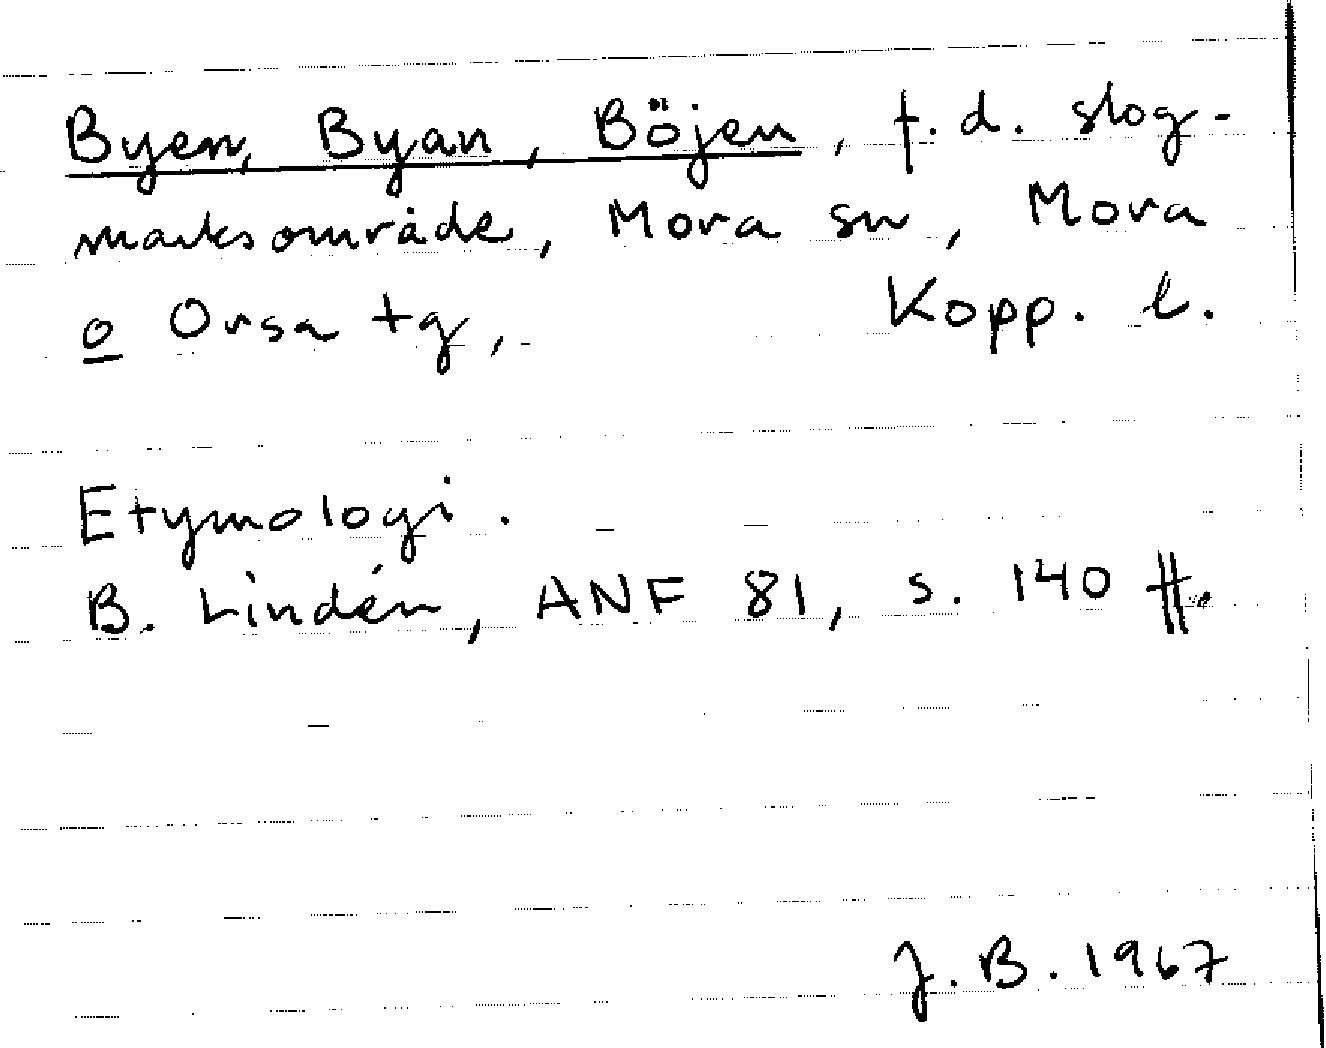 Byen, Byan, Böjen, f.d. slog-
marksområde, Mora sn, Mora
o Orsa tg, Kopp. l.
Etymologi.
B. Lindén, ANF 81, s. 140 ff.
J.B. 1967